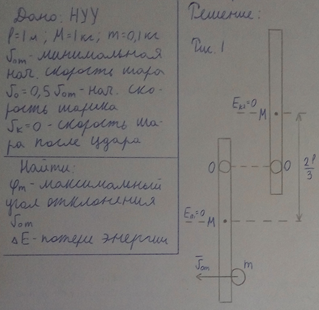 Дано: НУУ
l=1м; M=1кг; m=0,1кг
v₀ₘ-минимальная
нач. скорость шара
v₀=0,5v₀ₘ-нач. ско-
рость шарика
vₖ=0-скорость ша-
ра после удара
Найти:
φₘ-максимальный
угол отклонения
v₀ₘ
ΔE-потери энергии
Решение:
Рис. 1
M
O
O
2l/3
M
m
v₀ₘ